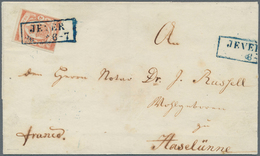 JEVER
6-7
A.
JEVER
Den Herrn Notar Dr. J. Russell
Wohlgeboren
zu
franco.
Haselünne